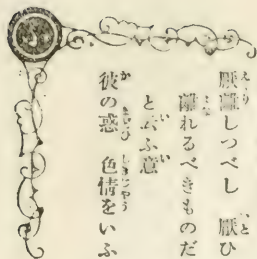 厭離しつべし 厭ひ
離れるべきものだ
と云ふ意
彼の惑 色情をいふ